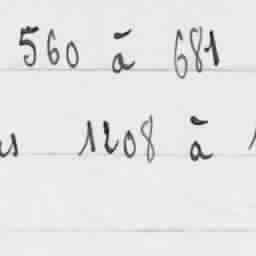 560 à 681
1208 à